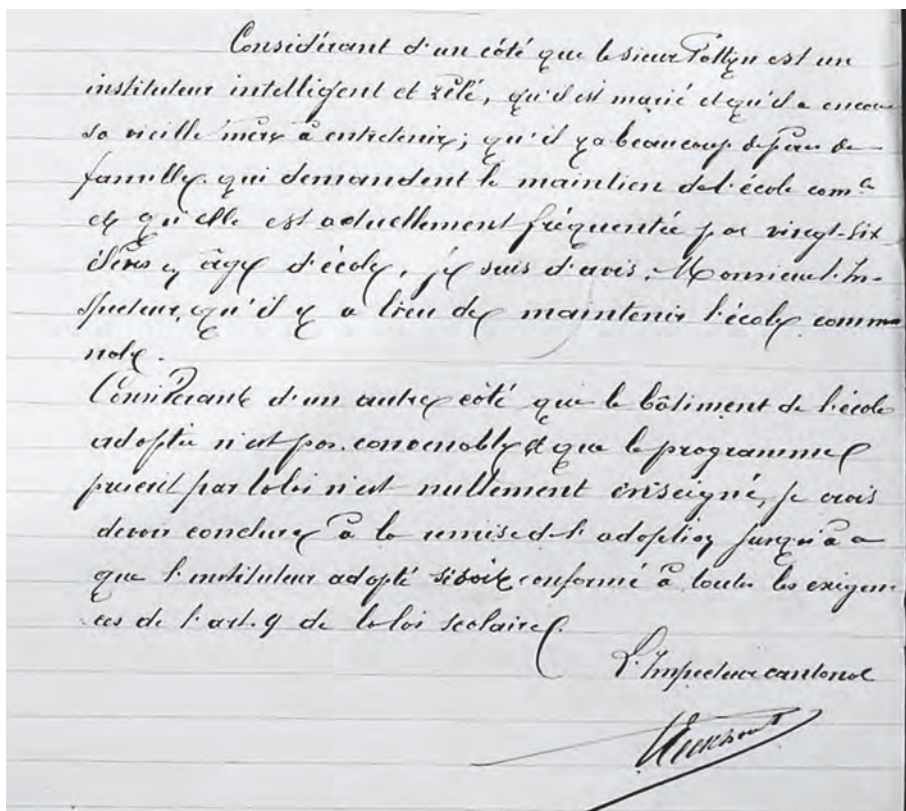 Considérant d'un côté que le sieur Pollyn est un
instituteur intelligent et zélé, qu'il est marié et qu'il a encore
sa vieille mère à entretenir; qu'il y a beaucoup de pères de
famille qui demandent le maintien de l'école comle
et qu'elle est actuellement fréquentée par vingt-six
élèves en âge d'école, je suis d'avis, Monsieur l'In-
specteur, qu'il y a lieu de maintenir l'école commu
nale.
Considérant d'un autre côté que le bâtiment de l'école
adoptée n'est pas convenable et que le programme
prescrit par la loi n'est nullement enseigné, je crois
devoir conclure à la remise de l'adoption jusqu'à ce
que l'instituteur adopté se soit conformé à toutes les exigen
ces de l'art. 9 de la loi scolaire.
L'Inspecteur cantonal